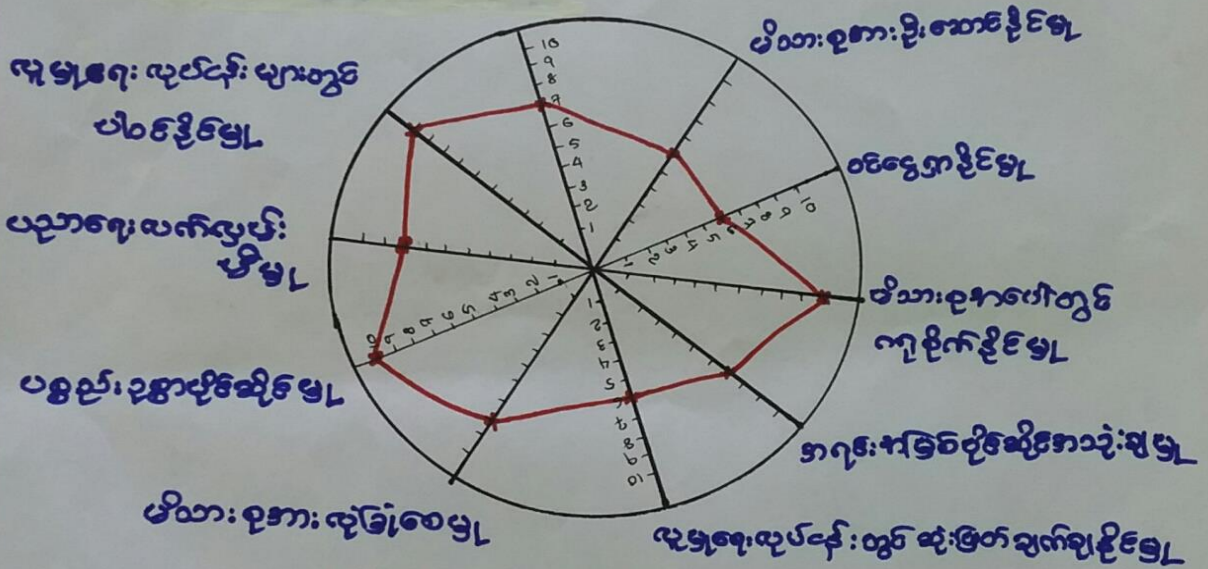 မိသားစုအားဦးဆောင်နိုင်မှု
ဝင်ငွေရှာနိုင်မှု
မိသားစုအပေါ်တွင်
ဂရုစိုက်နိုင်မှု
အရင်းအမြစ်ပိုင်ဆိုင်အသုံးချမှု
လူမှုရေးလုပ်ငန်းတွင် ဆုံးဖြတ်ချက်ချနိုင်မှု
မိသားစုအား လုံခြုံစေမှု
ပစ္စည်းဥစ္စာပိုင်ဆိုင်မှု
ပညာရေးလက်လှမ်း
မှီမှု
လူမှုရေး လုပ်ငန်းများတွင်
ပါဝင်နိုင်မှု
10
9
8
7
6
5
4
3
2
1
1 2 3 4 5 6 7 8 9 10
1
2
3
4
5
6
7
8
9
10
1 2 3 4 5 6 7 8 9 10